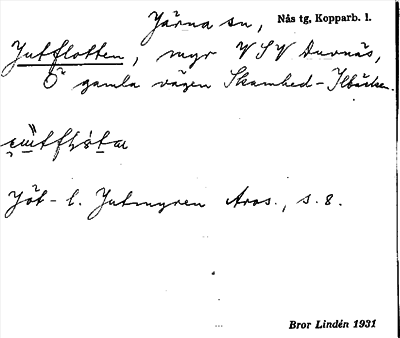 Järna sn, Nås tg, Kopparb. l.
Jutflotten, myr VSV Durnäs,
O gamla vägen Skamhed - Ilbäcken.
Jöt - l. Jutmyren Aros., s. 8.
Bror Lindén 1931